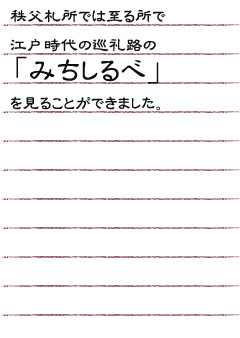 秩父札所では至る所で
江戸時代の巡礼路の
「みちしるべ」
を見ることができました。